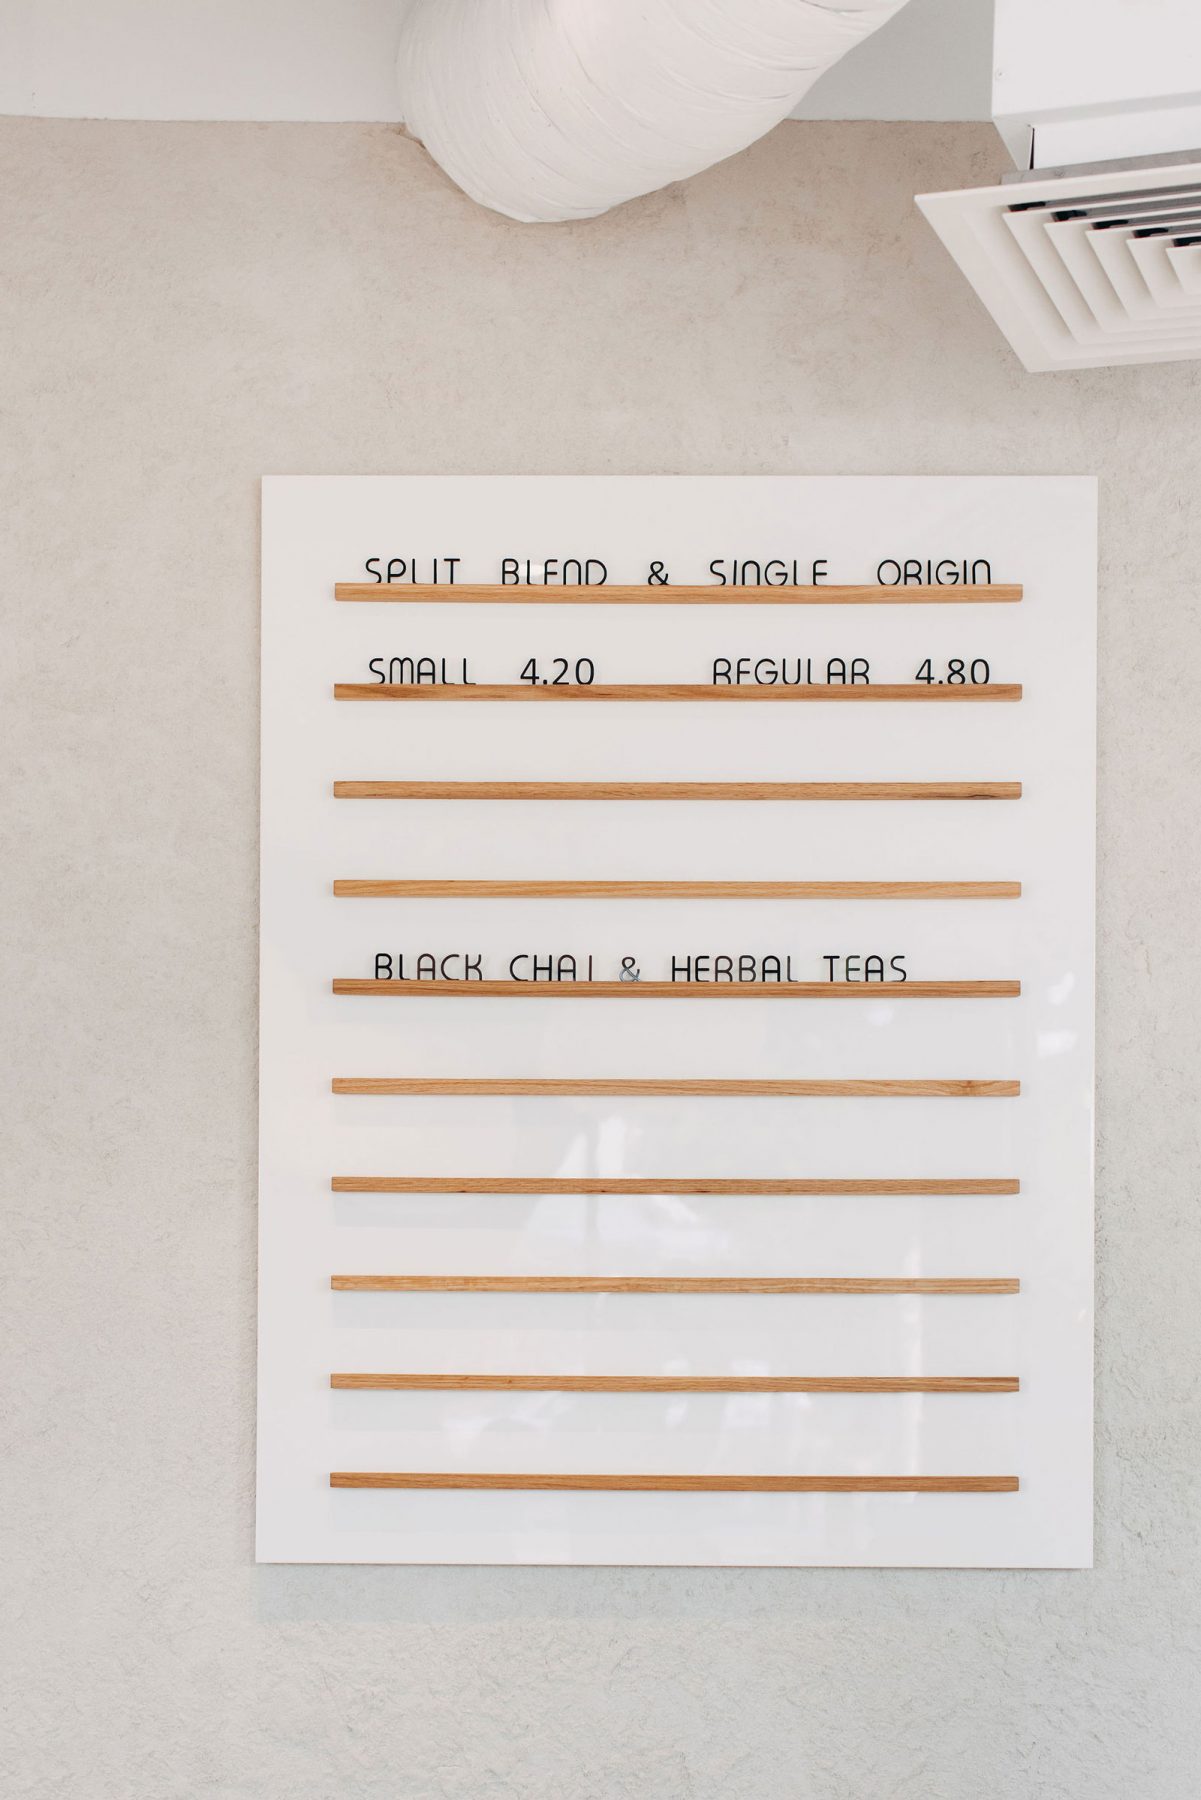 SPLIT BLEND & SINGLE ORIGIN
SMALL 4.20 REGULAR 4.80
BLACK CHAI & HERBAL TEAS